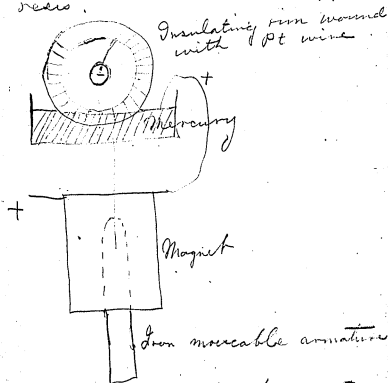 Insulating rim wound
with Pt wire
+
Mercury
+
Magnet
Iron moveable armature